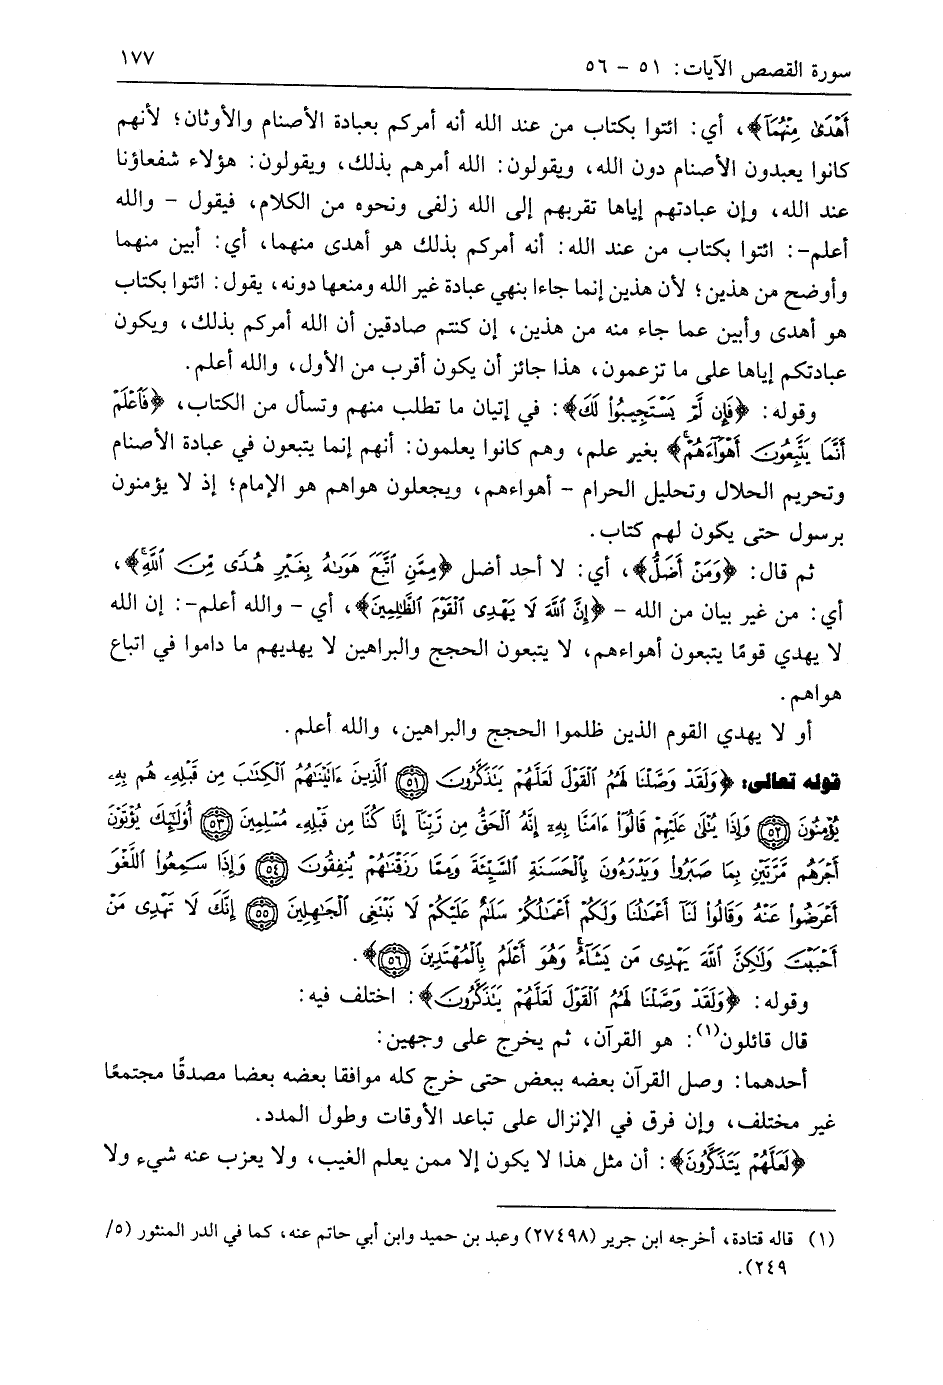 سورة القصص الآيات: ٥١ - ٥٦
١٧٧
أَهْدَىٰ مِنْهُمَآ﴾، أي: ائتوا بكتاب من عند الله أنه أمركم بعبادة الأصنام والأوثان؛ لأنهم
كانوا يعبدون الأصنام دون الله، ويقولون: الله أمرهم بذلك، ويقولون: هؤلاء شفعاؤنا
عند الله، وإن عبادتهم إياها تقربهم إلى الله زلفى ونحوه من الكلام، فيقول - والله
أعلم-: ائتوا بكتاب من عند الله: أنه أمركم بذلك هو أهدى منهما، أي: أبين منهما
وأوضح من هذين؛ لأن هذين إنما جاءا بنهي عبادة غير الله ومنعها دونه، يقول: ائتوا بكتاب
هو أهدى وأبين عما جاء منه من هذين، إن كنتم صادقين أن الله أمركم بذلك، ويكون
عبادتكم إياها على ما تزعمون، هذا جائز أن يكون أقرب من الأول، والله أعلم.
وقوله: ﴿فَإِن لَّمْ يَسْتَجِيبُوا۟ لَكَ﴾: في إتيان ما تطلب منهم وتسأل من الكتاب، ﴿فَٱعْلَمْ
أَنَّمَا يَتَّبِعُونَ أَهْوَآءَهُمْ﴾ بغير علم، وهم كانوا يعلمون: أنهم إنما يتبعون في عبادة الأصنام
وتحريم الحلال وتحليل الحرام - أهواءهم، ويجعلون هواهم هو الإمام؛ إذ لا يؤمنون
برسول حتى يكون لهم كتاب.
ثم قال: ﴿وَمَنْ أَضَلُّ﴾، أي: لا أحد أضل ﴿مِمَّنِ ٱتَّبَعَ هَوَىٰهُ بِغَيْرِ هُدًى مِّنَ ٱللَّهِ﴾،
أي: من غير بيان من الله - ﴿إِنَّ ٱللَّهَ لَا يَهْدِى ٱلْقَوْمَ ٱلظَّٰلِمِينَ﴾، أي - والله أعلم-: إن الله
لا يهدي قومًا يتبعون أهواءهم، لا يتبعون الحجج والبراهين لا يهديهم ما داموا في اتباع
هواهم.
أو لا يهدي القوم الذين ظلموا الحجج والبراهين، والله أعلم.
قوله تعالى: ﴿وَلَقَدْ وَصَّلْنَا لَهُمُ ٱلْقَوْلَ لَعَلَّهُمْ يَتَذَكَّرُونَ ٥١ ٱلَّذِينَ ءَاتَيْنَٰهُمُ ٱلْكِتَٰبَ مِن قَبْلِهِۦ هُم بِهِۦ
يُؤْمِنُونَ ٥٢ وَإِذَا يُتْلَىٰ عَلَيْهِمْ قَالُوٓا۟ ءَامَنَّا بِهِۦٓ إِنَّهُ ٱلْحَقُّ مِن رَّبِّنَآ إِنَّا كُنَّا مِن قَبْلِهِۦ مُسْلِمِينَ ٥٣ أُو۟لَٰٓئِكَ يُؤْتَوْنَ
أَجْرَهُم مَّرَّتَيْنِ بِمَا صَبَرُوا۟ وَيَدْرَءُونَ بِٱلْحَسَنَةِ ٱلسَّيِّئَةَ وَمِمَّا رَزَقْنَٰهُمْ يُنفِقُونَ ٥٤ وَإِذَا سَمِعُوا۟ ٱللَّغْوَ
أَعْرَضُوا۟ عَنْهُ وَقَالُوا۟ لَنَآ أَعْمَٰلُنَا وَلَكُمْ أَعْمَٰلُكُمْ سَلَٰمٌ عَلَيْكُمْ لَا نَبْتَغِى ٱلْجَٰهِلِينَ ٥٥ إِنَّكَ لَا تَهْدِى مَنْ
أَحْبَبْتَ وَلَٰكِنَّ ٱللَّهَ يَهْدِى مَن يَشَآءُ وَهُوَ أَعْلَمُ بِٱلْمُهْتَدِينَ ٥٦﴾.
وقوله: ﴿وَلَقَدْ وَصَّلْنَا لَهُمُ ٱلْقَوْلَ لَعَلَّهُمْ يَتَذَكَّرُونَ﴾: اختلف فيه:
قال قائلون(١): هو القرآن، ثم يخرج على وجهين:
أحدهما: وصل القرآن بعضه ببعض حتى خرج كله موافقا بعضه بعضا مصدقًا مجتمعًا
غير مختلف، وإن فرق في الإنزال على تباعد الأوقات وطول المدد.
﴿لَعَلَّهُمْ يَتَذَكَّرُونَ﴾: أن مثل هذا لا يكون إلا ممن يعلم الغيب، ولا يعزب عنه شيء ولا
(١) قاله قتادة، أخرجه ابن جرير (٢٧٤٩٨) وعبد بن حميد وابن أبي حاتم عنه، كما في الدر المنثور (٥/
٢٤٩).